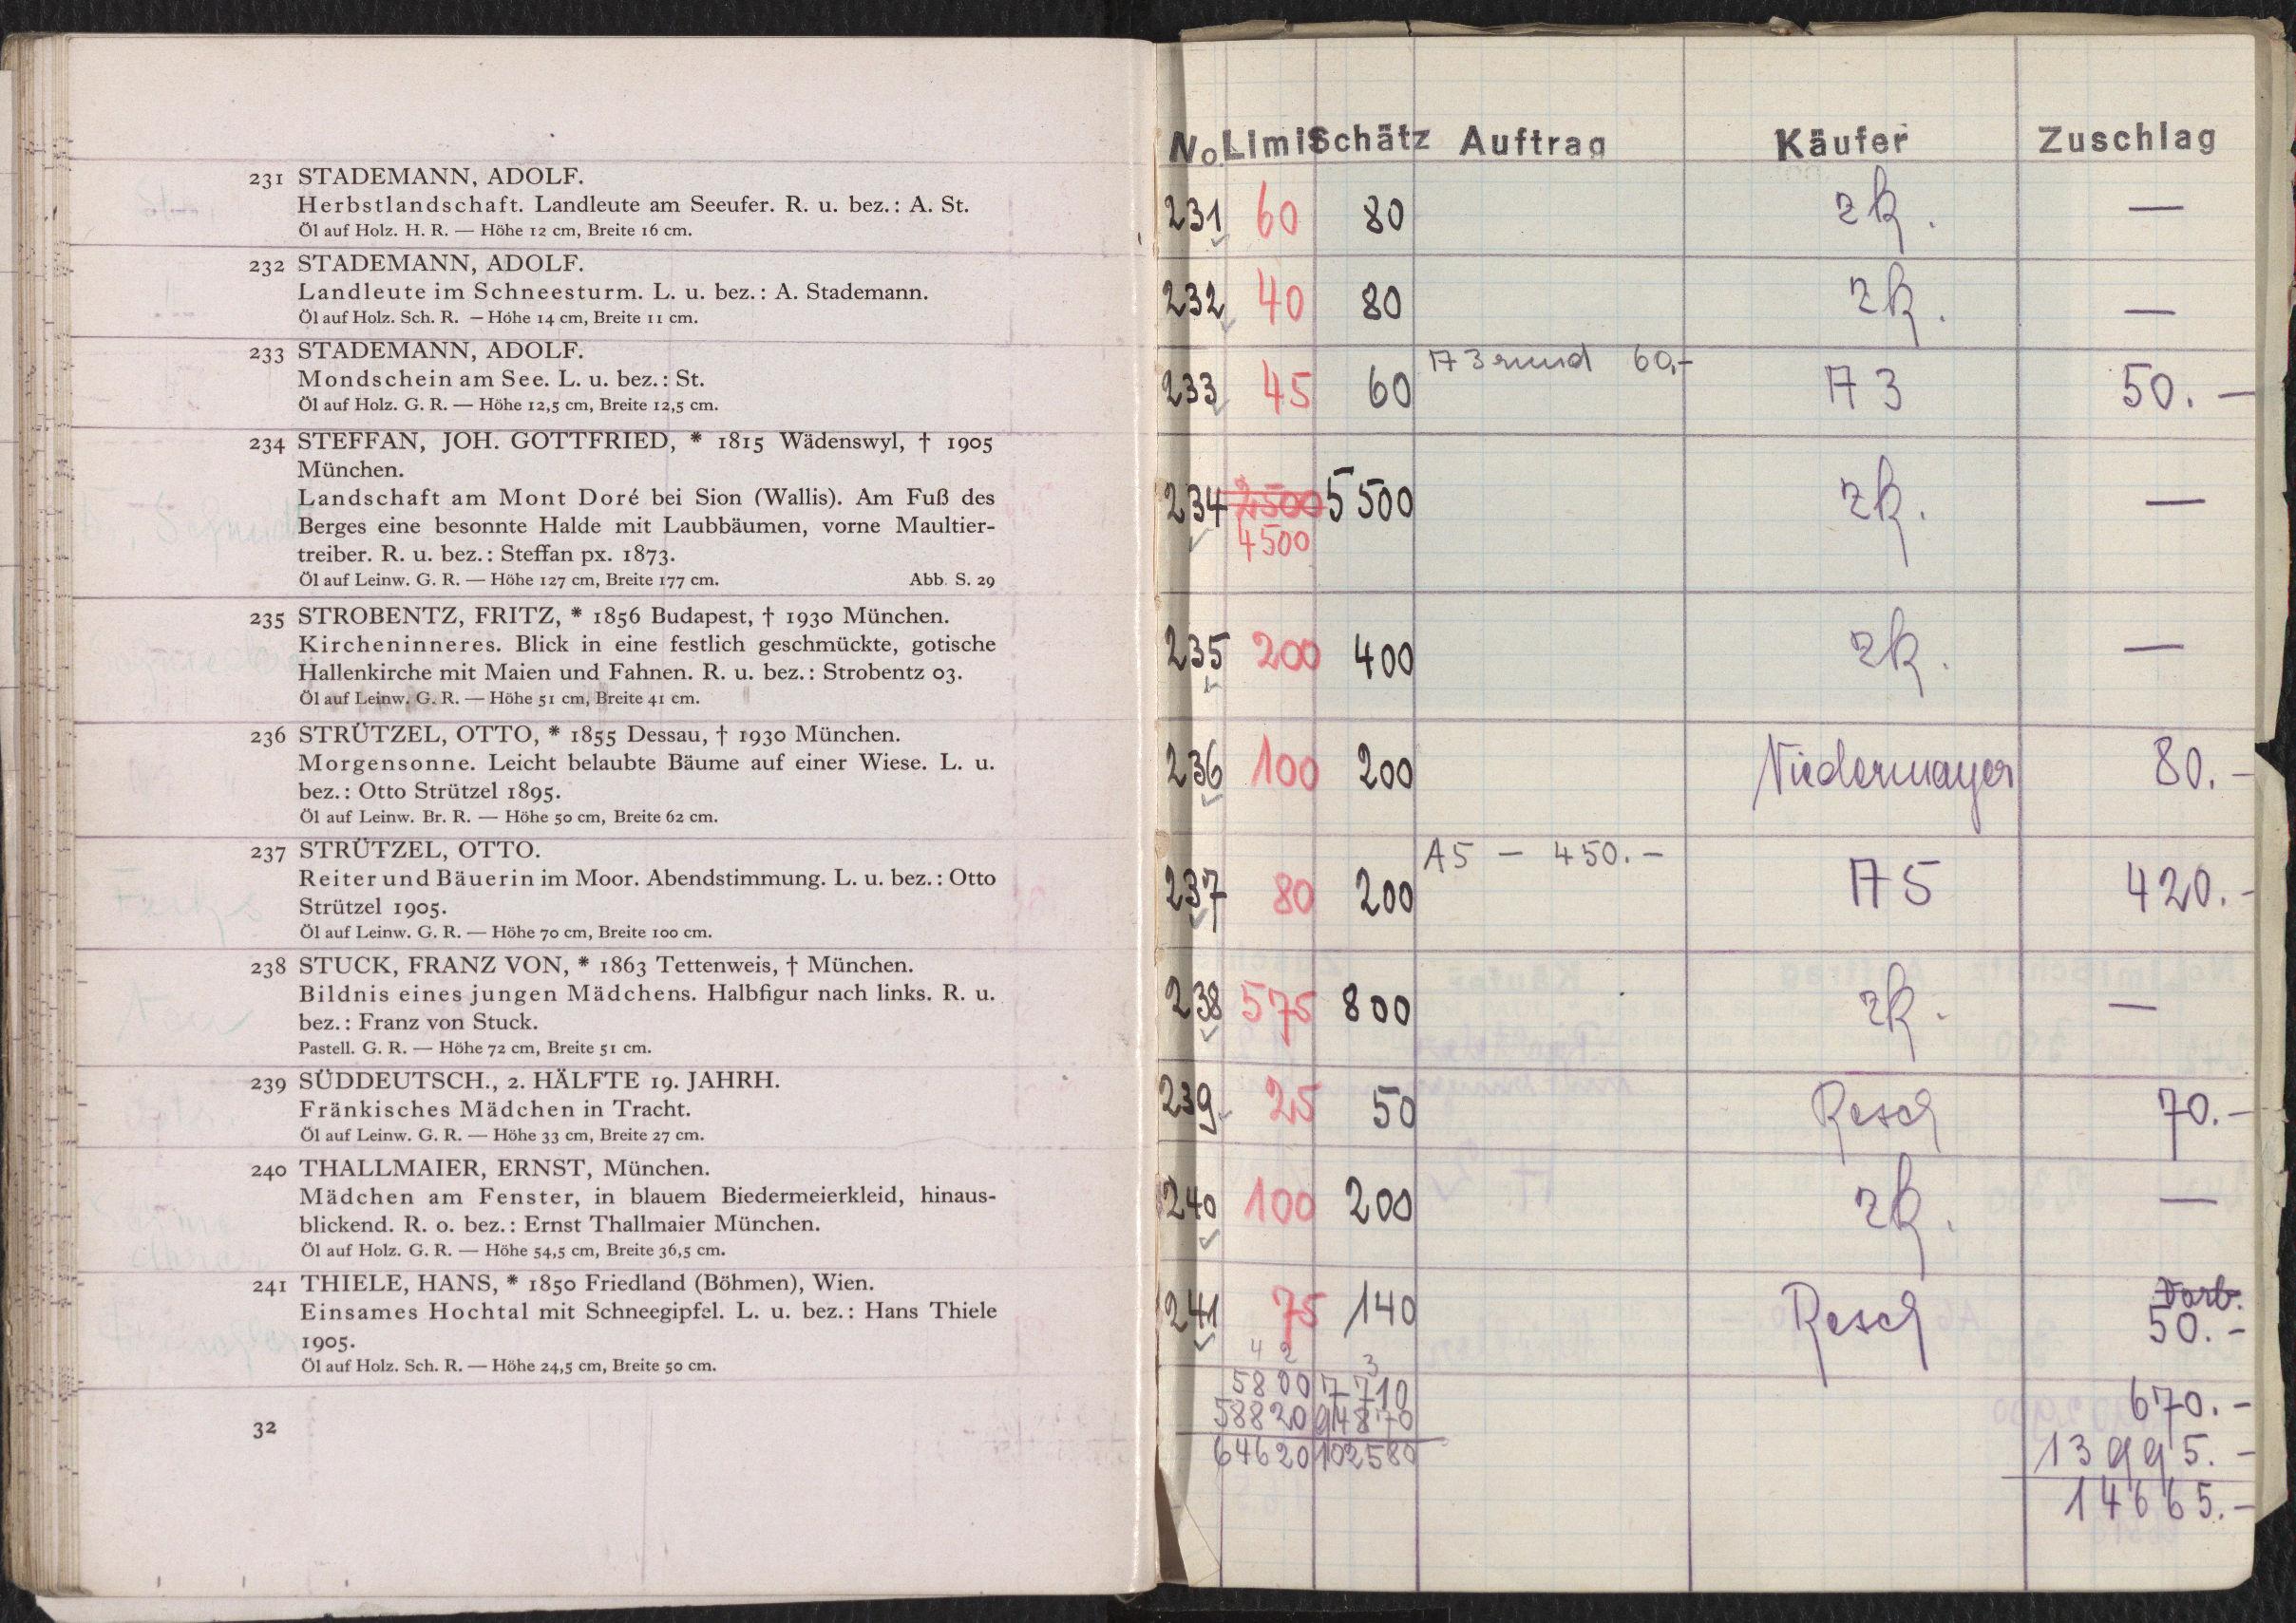 231 STADEMANN, ADOLF.
Herbstlandschaft. Landleute am Seeufer. R. u. bez.: A. St.
Öl auf Holz. H. R. — Höhe 12 cm, Breite 16 cm.
232 STADEMANN, ADOLF.
Landleute im Schneesturm. L. u. bez.: A. Stademann.
Öl auf Holz. Sch. R. — Höhe 14 cm, Breite 11 cm.
233 STADEMANN, ADOLF.
Mondschein am See. L. u. bez.: St.
Öl auf Holz. G. R. — Höhe 12,5 cm, Breite 12,5 cm.
234 STEFFAN, JOH. GOTTFRIED, * 1815 Wädenswyl, † 1905
München.
Landschaft am Mont Doré bei Sion (Wallis). Am Fuß des
Berges eine besonnte Halde mit Laubbäumen, vorne Maultier-
treiber. R. u. bez.: Steffan px. 1873.
Öl auf Leinw. G. R. — Höhe 127 cm, Breite 177 cm. Abb. S. 29
235 STROBENTZ, FRITZ, * 1856 Budapest, † 1930 München.
Kircheninneres. Blick in eine festlich geschmückte, gotische
Hallenkirche mit Maien und Fahnen. R. u. bez.: Strobentz 03.
Öl auf Leinw. G. R. — Höhe 51 cm, Breite 41 cm.
236 STRÜTZEL, OTTO, * 1855 Dessau, † 1930 München.
Morgensonne. Leicht belaubte Bäume auf einer Wiese. L. u.
bez.: Otto Strützel 1895.
Öl auf Leinw. Br. R. — Höhe 50 cm, Breite 62 cm.
237 STRÜTZEL, OTTO.
Reiter und Bäuerin im Moor. Abendstimmung. L. u. bez.: Otto
Strützel 1905.
Öl auf Leinw. G. R. — Höhe 70 cm, Breite 100 cm.
238 STUCK, FRANZ VON, * 1863 Tettenweis, † München.
Bildnis eines jungen Mädchens. Halbfigur nach links. R. u.
bez.: Franz von Stuck.
Pastell. G. R. — Höhe 72 cm, Breite 51 cm.
239 SÜDDEUTSCH., 2. HÄLFTE 19. JAHRH.
Fränkisches Mädchen in Tracht.
Öl auf Leinw. G. R. — Höhe 33 cm, Breite 27 cm.
240 THALLMAIER, ERNST, München.
Mädchen am Fenster, in blauem Biedermeierkleid, hinaus-
blickend. R. o. bez.: Ernst Thallmaier München.
Öl auf Holz. G. R. — Höhe 54,5 cm, Breite 36,5 cm.
241 THIELE, HANS, * 1850 Friedland (Böhmen), Wien.
Einsames Hochtal mit Schneegipfel. L. u. bez.: Hans Thiele
1905.
Öl auf Holz. Sch. R. — Höhe 24,5 cm, Breite 50 cm.
32
No. Limit Schätz Auftrag Käufer Zuschlag
231 60 80 zk. —
232 40 80 zk. —
A3 rund 60,-
233 45 60 A3 50. —
234 2500 5500 zk. —
4500
235 200 400 zk. —
236 100 200 Niedermayer 80. -
A5 — 450. —
237 80 200 A5 420. -
238 575 800 zk. —
239 25 50 Resch 70. -
240 100 200 zk. —
Vorb.
241 75 140 Resch 50. -
4 2 3
5800 7710 670. -
58820 94870 13995. -
64620 102580 14665. -